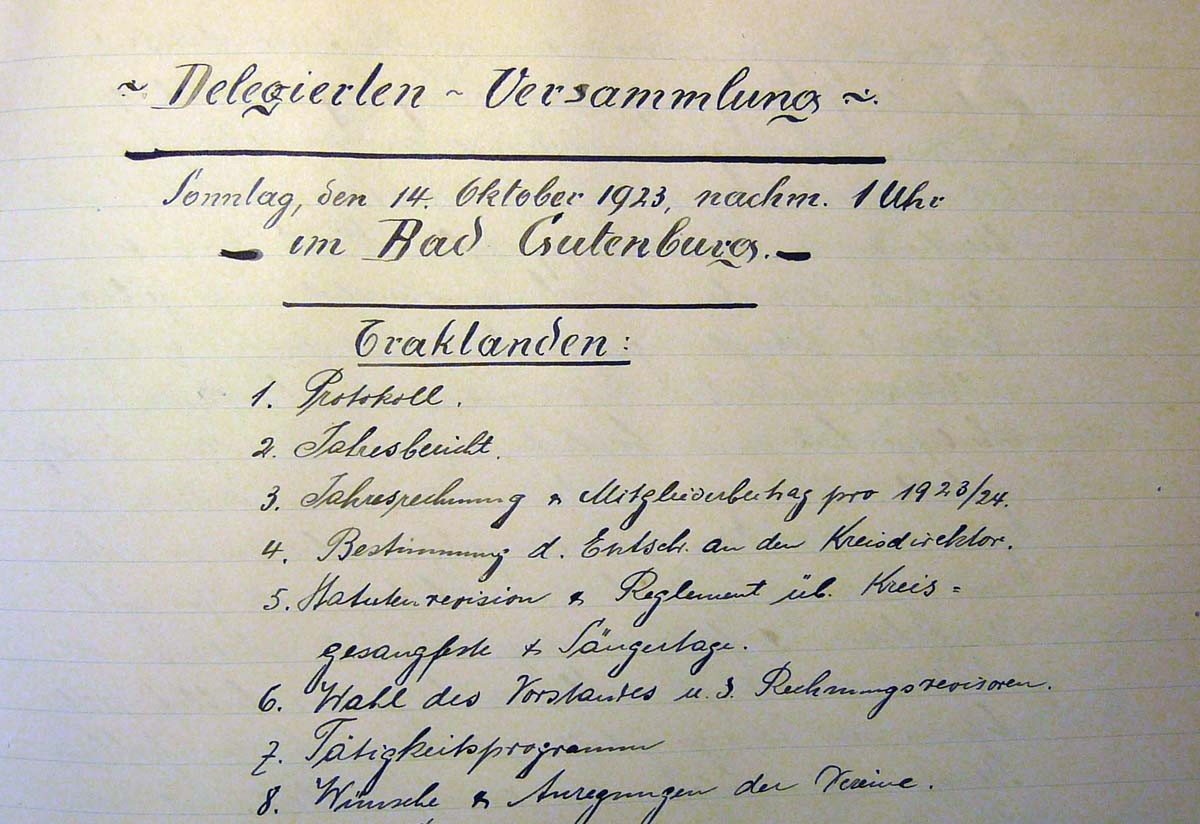 ~ Delegierten - Versammlung ~.
Sonntag, den 14. Oktober 1923, nachm. 1 Uhr
- im Bad Gutenburg. -
Traktanden:
1. Protokoll.
2. Jahresbericht.
3. Jahresrechnung & Mitgliederbeitrag pro 1923/24.
4. Bestimmung d. Entsch. an den Kreisdirektor.
5. Statutenrevision & Reglement üb. Kreis=
gesangfeste & Sängertage.
6. Wahl des Vorstandes u. d. Rechnungsrevisoren.
7. Tätigkeitsprogramm
8. Wünsche & Anregungen der Vereine.